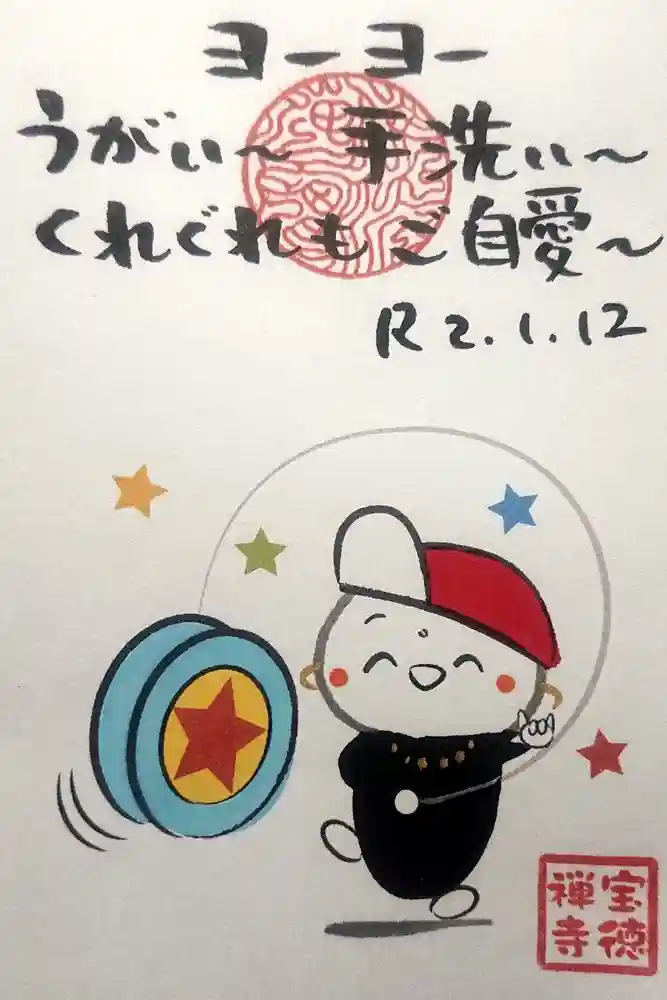 ヨーヨー
うがい〜 手洗い〜
くれぐれもご自愛〜
R2.1.12
宝徳
禅寺